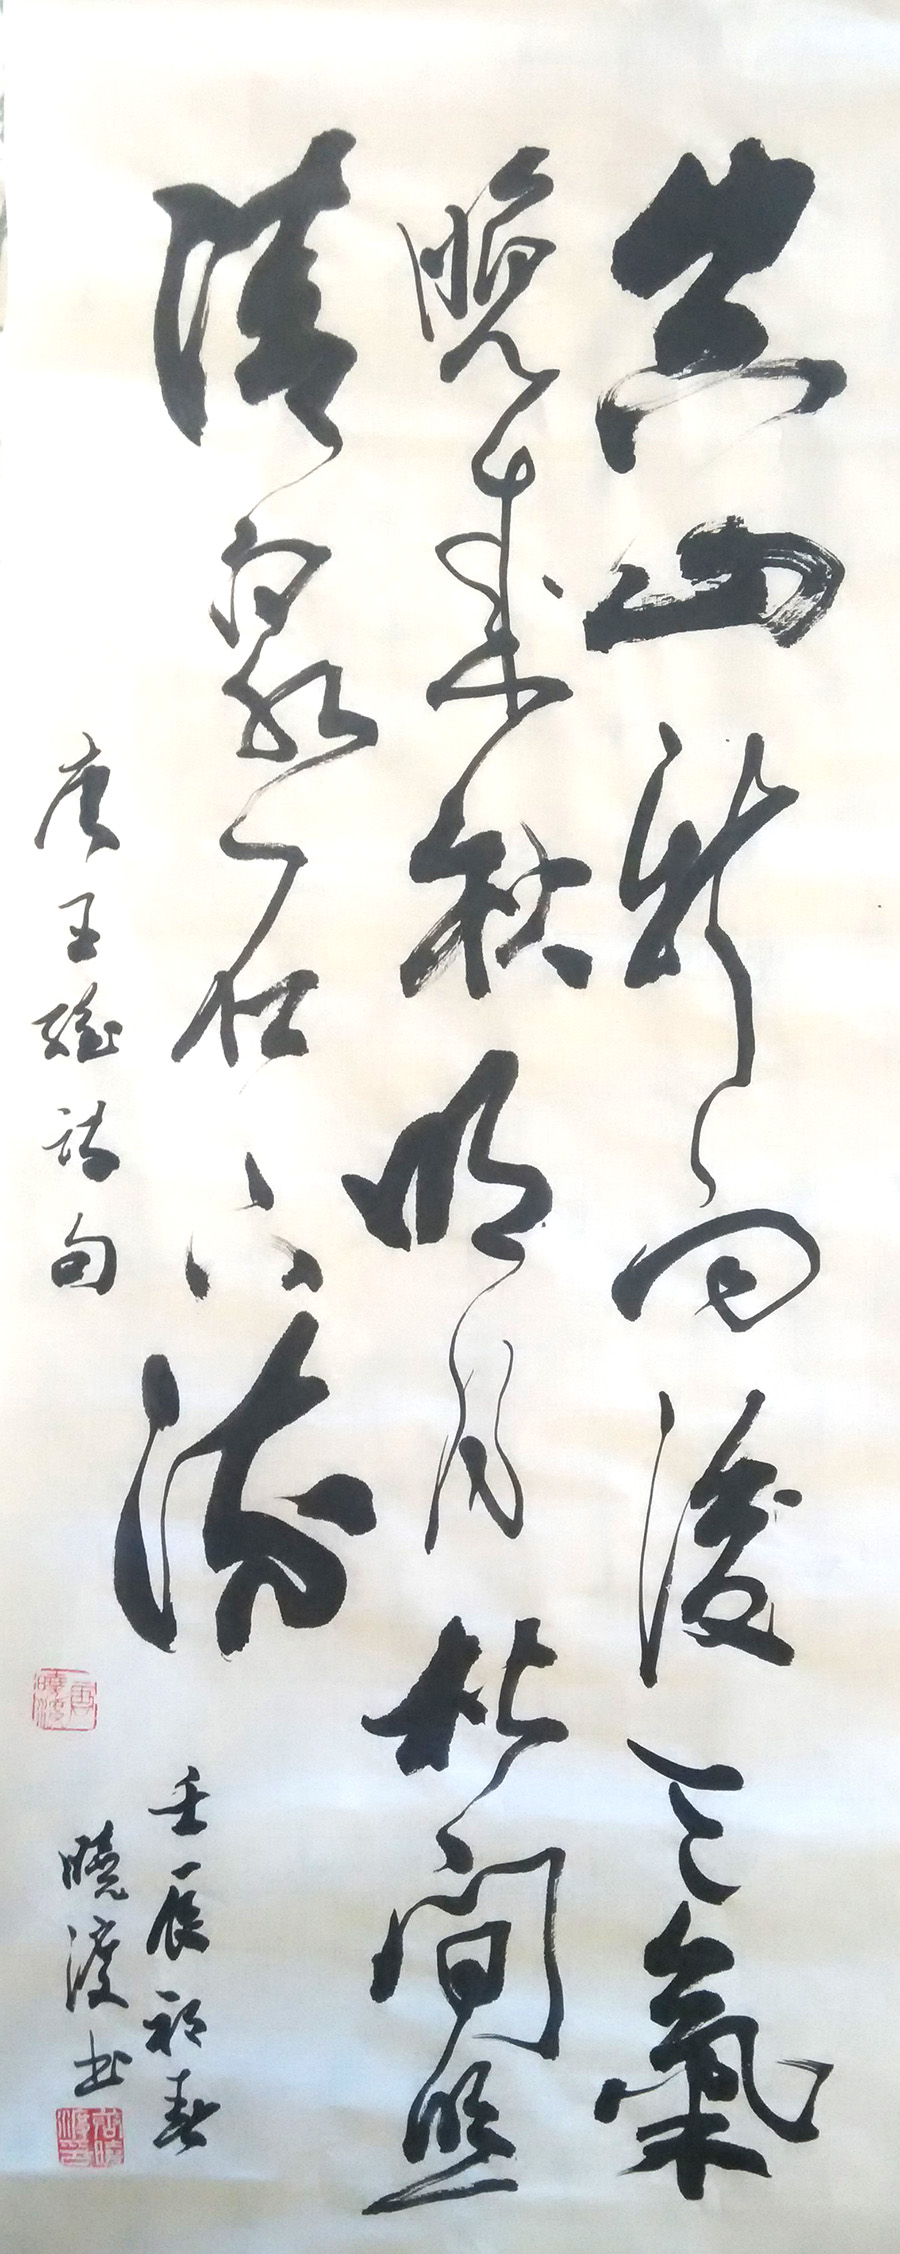 空山新雨後天氣
晚來秋明月松間照
清泉石上流
唐王維詩句
壬辰初春
曉渡书